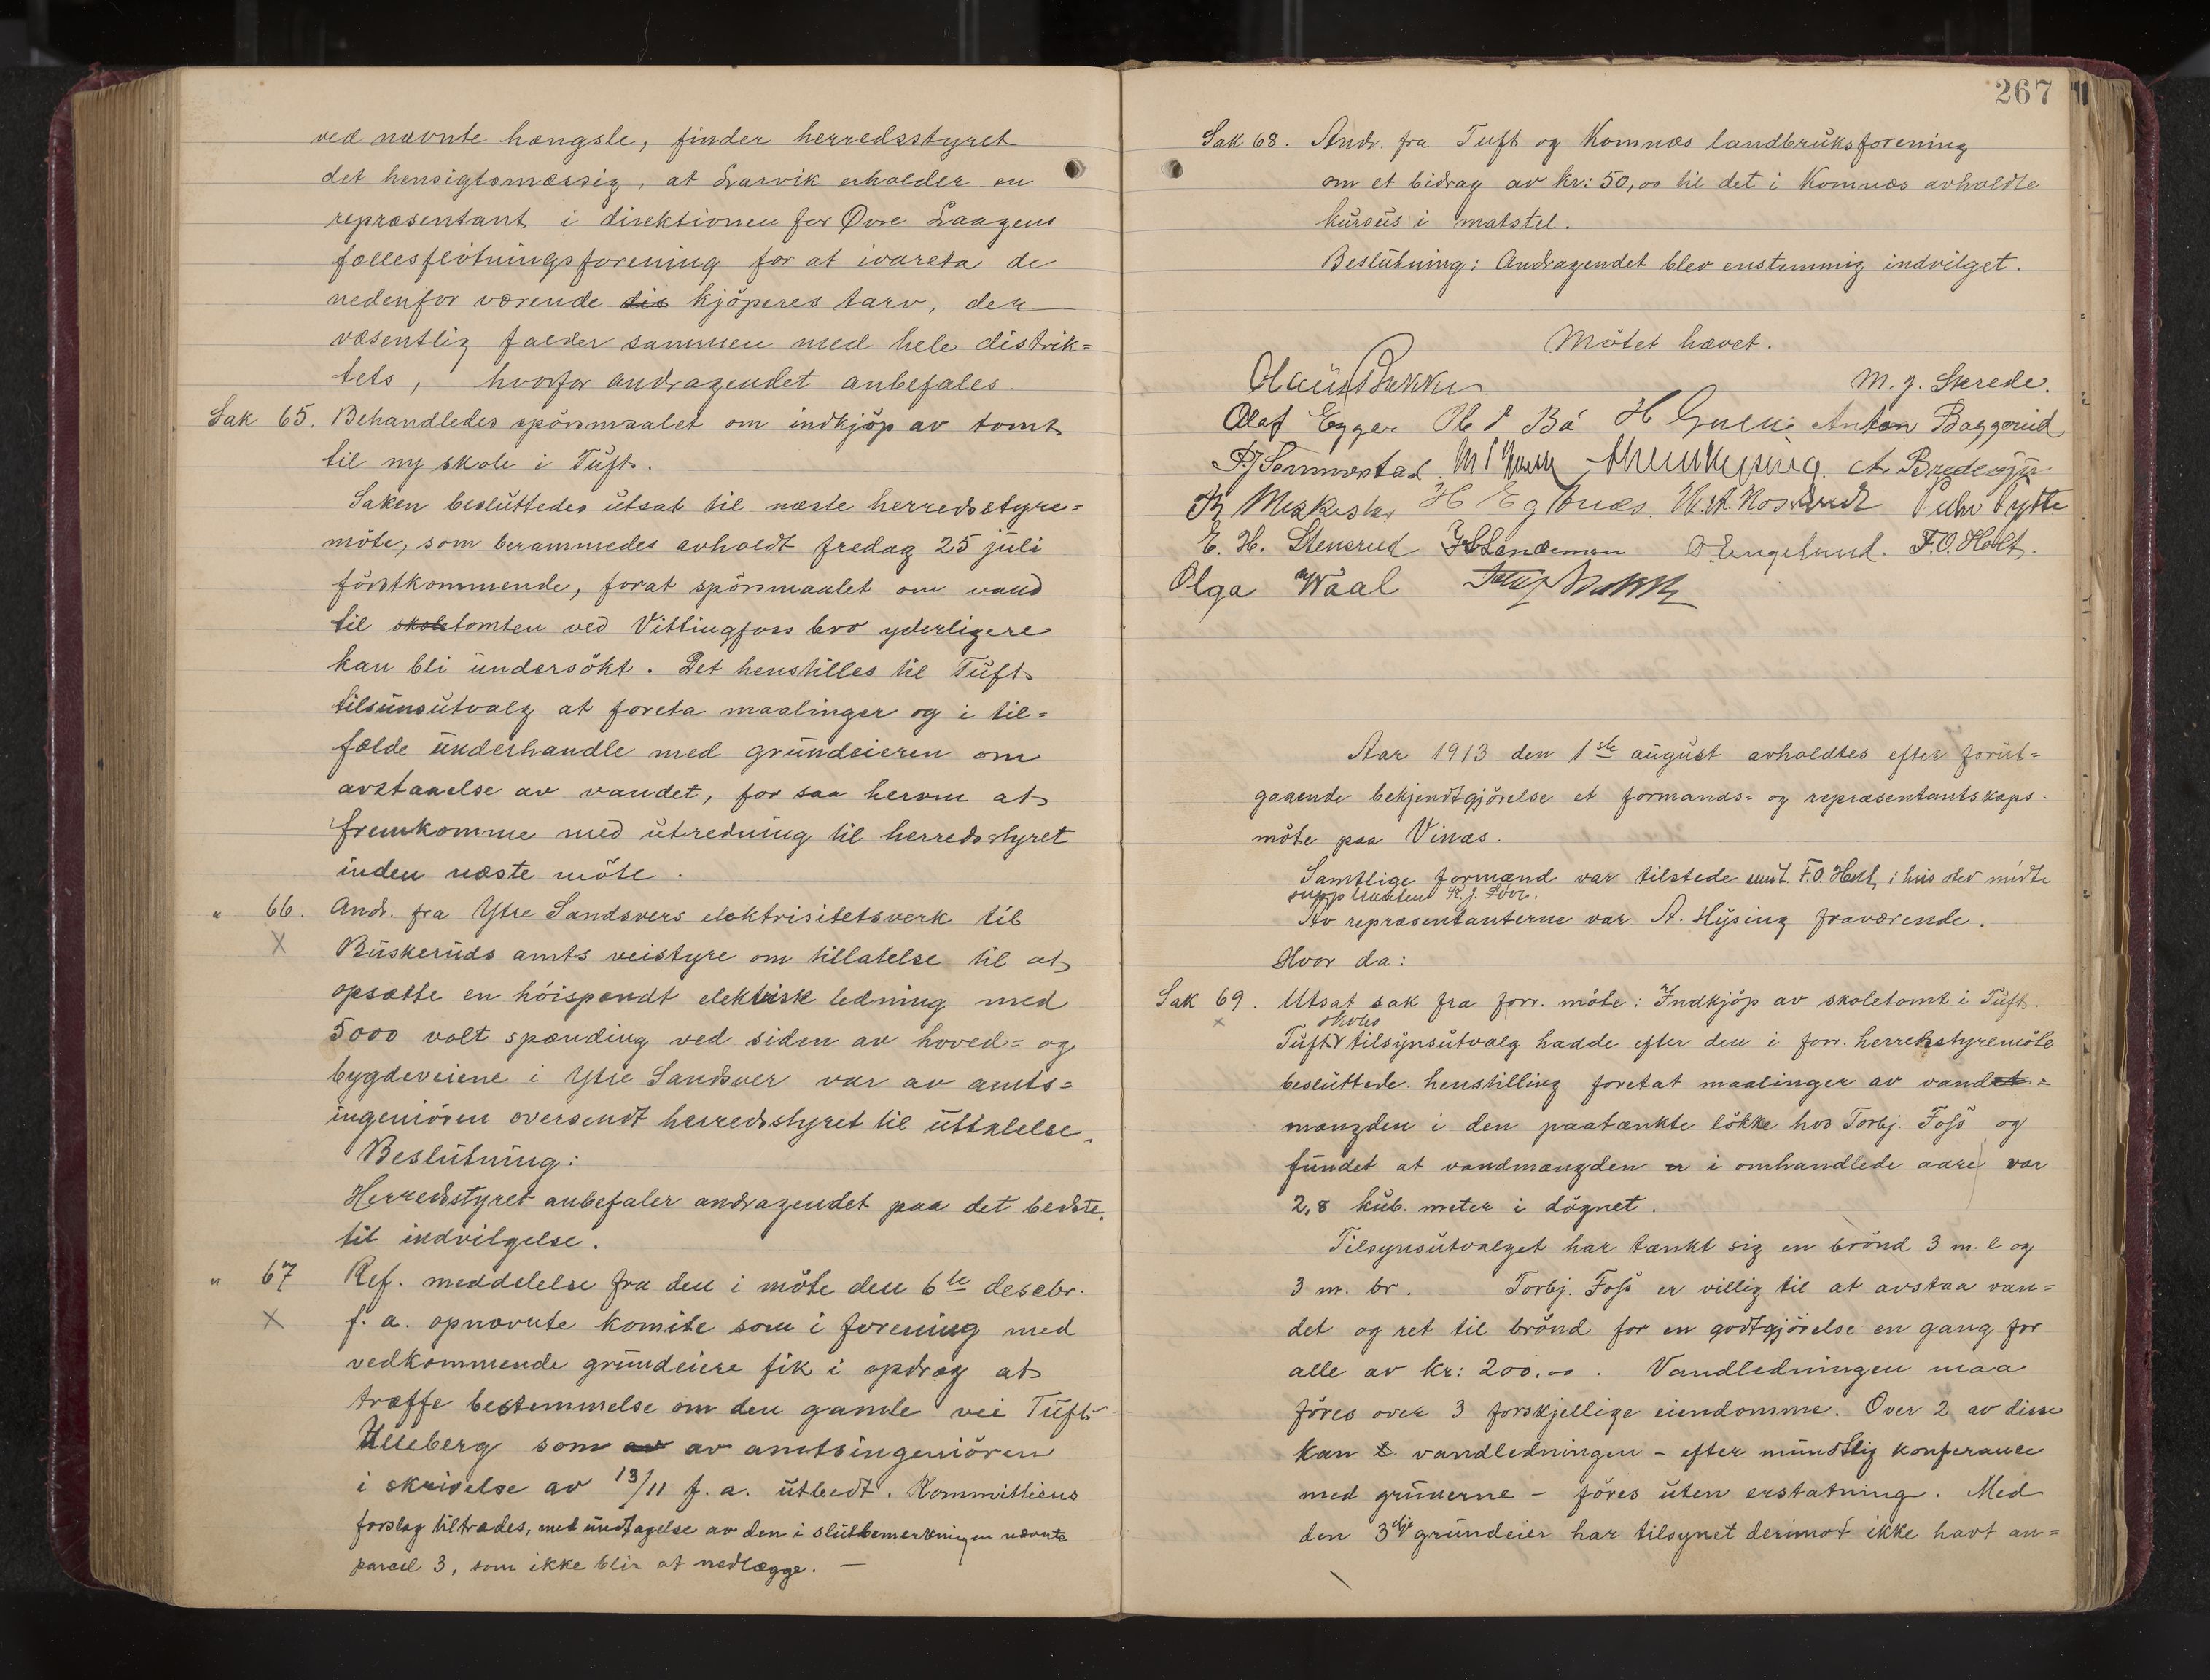 ved nævnte hængsle, finder herredsstyret
det hensigtsmæssig, at Larvik erholder en
repræsentant i direktionen for Øvre Laagens
fællesflötningsforening for at ivareta de
nedenfor værende dis kjöperes tarv, der
væsentlig falder sammen med hele distrik=
tets, hvorfor andragendet anbefales.
Sak 65. Behandledes spörsmaalet om indkjöp av tomt
til ny skole i Tuft.
Saken besluttedes utsat til næste herredsstyre=
möte, som berammedes avholdt fredag 25 juli
förstkommende, forat spörsmaalet om vand
til skoletomten ved Vittingfoss bro yderligere
kan bli undersökt. Det henstilles til Tuft
tilsünsutvalg at foreta maalinger og i til=
fælde underhandle med grundeieren om
avstaaelse av vandet, for saa herom at
fremkomme med utredning til herredsstyret
inden næste möte.
" 66. Andr. fra Ytre Sandsvers elektrisitetsverk til
X Buskeruds amts veistyre om tillatelse til at
opsætte en höispændt elektrisk ledning med
5000 volt spænding ved siden av hoved= og
bygdeveiene i Ytre Sandsver var av amts=
ingeniören oversendt herredsstyret til uttalelse.
Beslutning:
Herredsstyret anbefaler andragendet paa det bedste
til indvilgelse.
" 67 Ref. meddelelse fra den i möte den 6te desebr.
X f. a. opnævnte komite som i forening med
vedkommende grundeiere fik i opdrag at
træffe bestemmelse om den gamle vei Tuft-
Ulleberg som av av amtsingeniören
i skrivelse av 13/11 f. a. utbedt. Kommitteens
forslag tiltrædes, med undtagelse av den i slutbemerkningen nævnte
parcel 3, som ikke blir at nedlægge. —
267
Sak 68. Andr. fra Tuft og Komnæs landbruksforening
om et bidrag av kr: 50,00 til det i Komnæs avholdte
kursus i matstel.
Beslutning: Andragendet blev enstemmig indvilget.
Mötet hævet.
Olaus Bakke M. J. Skrede.
Olaf Egger Ole P Bö H Anton Baggerud
A. Bredesen
H Egtvæs.
E. H. Stensrud Landeman Engelund. F.O. Holt.
Olga Waal
Aar 1913 den 1ste august avholdtes efter forut=
gaaende bekjendtgjörelse et formands= og repræsentantskaps=
möte paa Vinæs.
Samtlige formænd var tilstede undt. F.O. Holt, i hvis sted mödte
supplianten K. J.
Av repræsentanterne var A. Hysing fraværende.
Hvor da:
Sak 69. Utsat sak fra forr. möte: Indkjöp av skoletomt i Tuft.
x skoles
Tuft tilsynsutvalg hadde efter den i forr. herredsstyremöte
besluttede henstilling foretat maalinger av vandet=
mængden i den paatænkte lökke hos Torbj. Foss og
fundet at vandmængden er i omhandlede aare var
2,8 kub. meter i dögnet.
Tilsynsutvalget har tænkt sig en brönd 3 m. l og
3 m. br. Torbj. Foss er villig til at avstaa van=
det og ret til brönd for en godtgjörelse en gang for
alle av kr: 200,00. Vandledningen maa
föres over 3 forskjellige eiendomme. Over 2 av disse
kan t vandledningen – efter mundtlig konferance
med grunerne – föres uten erstatning. Med
den 3dje grundeier har tilsynet derimot ikke havt an=